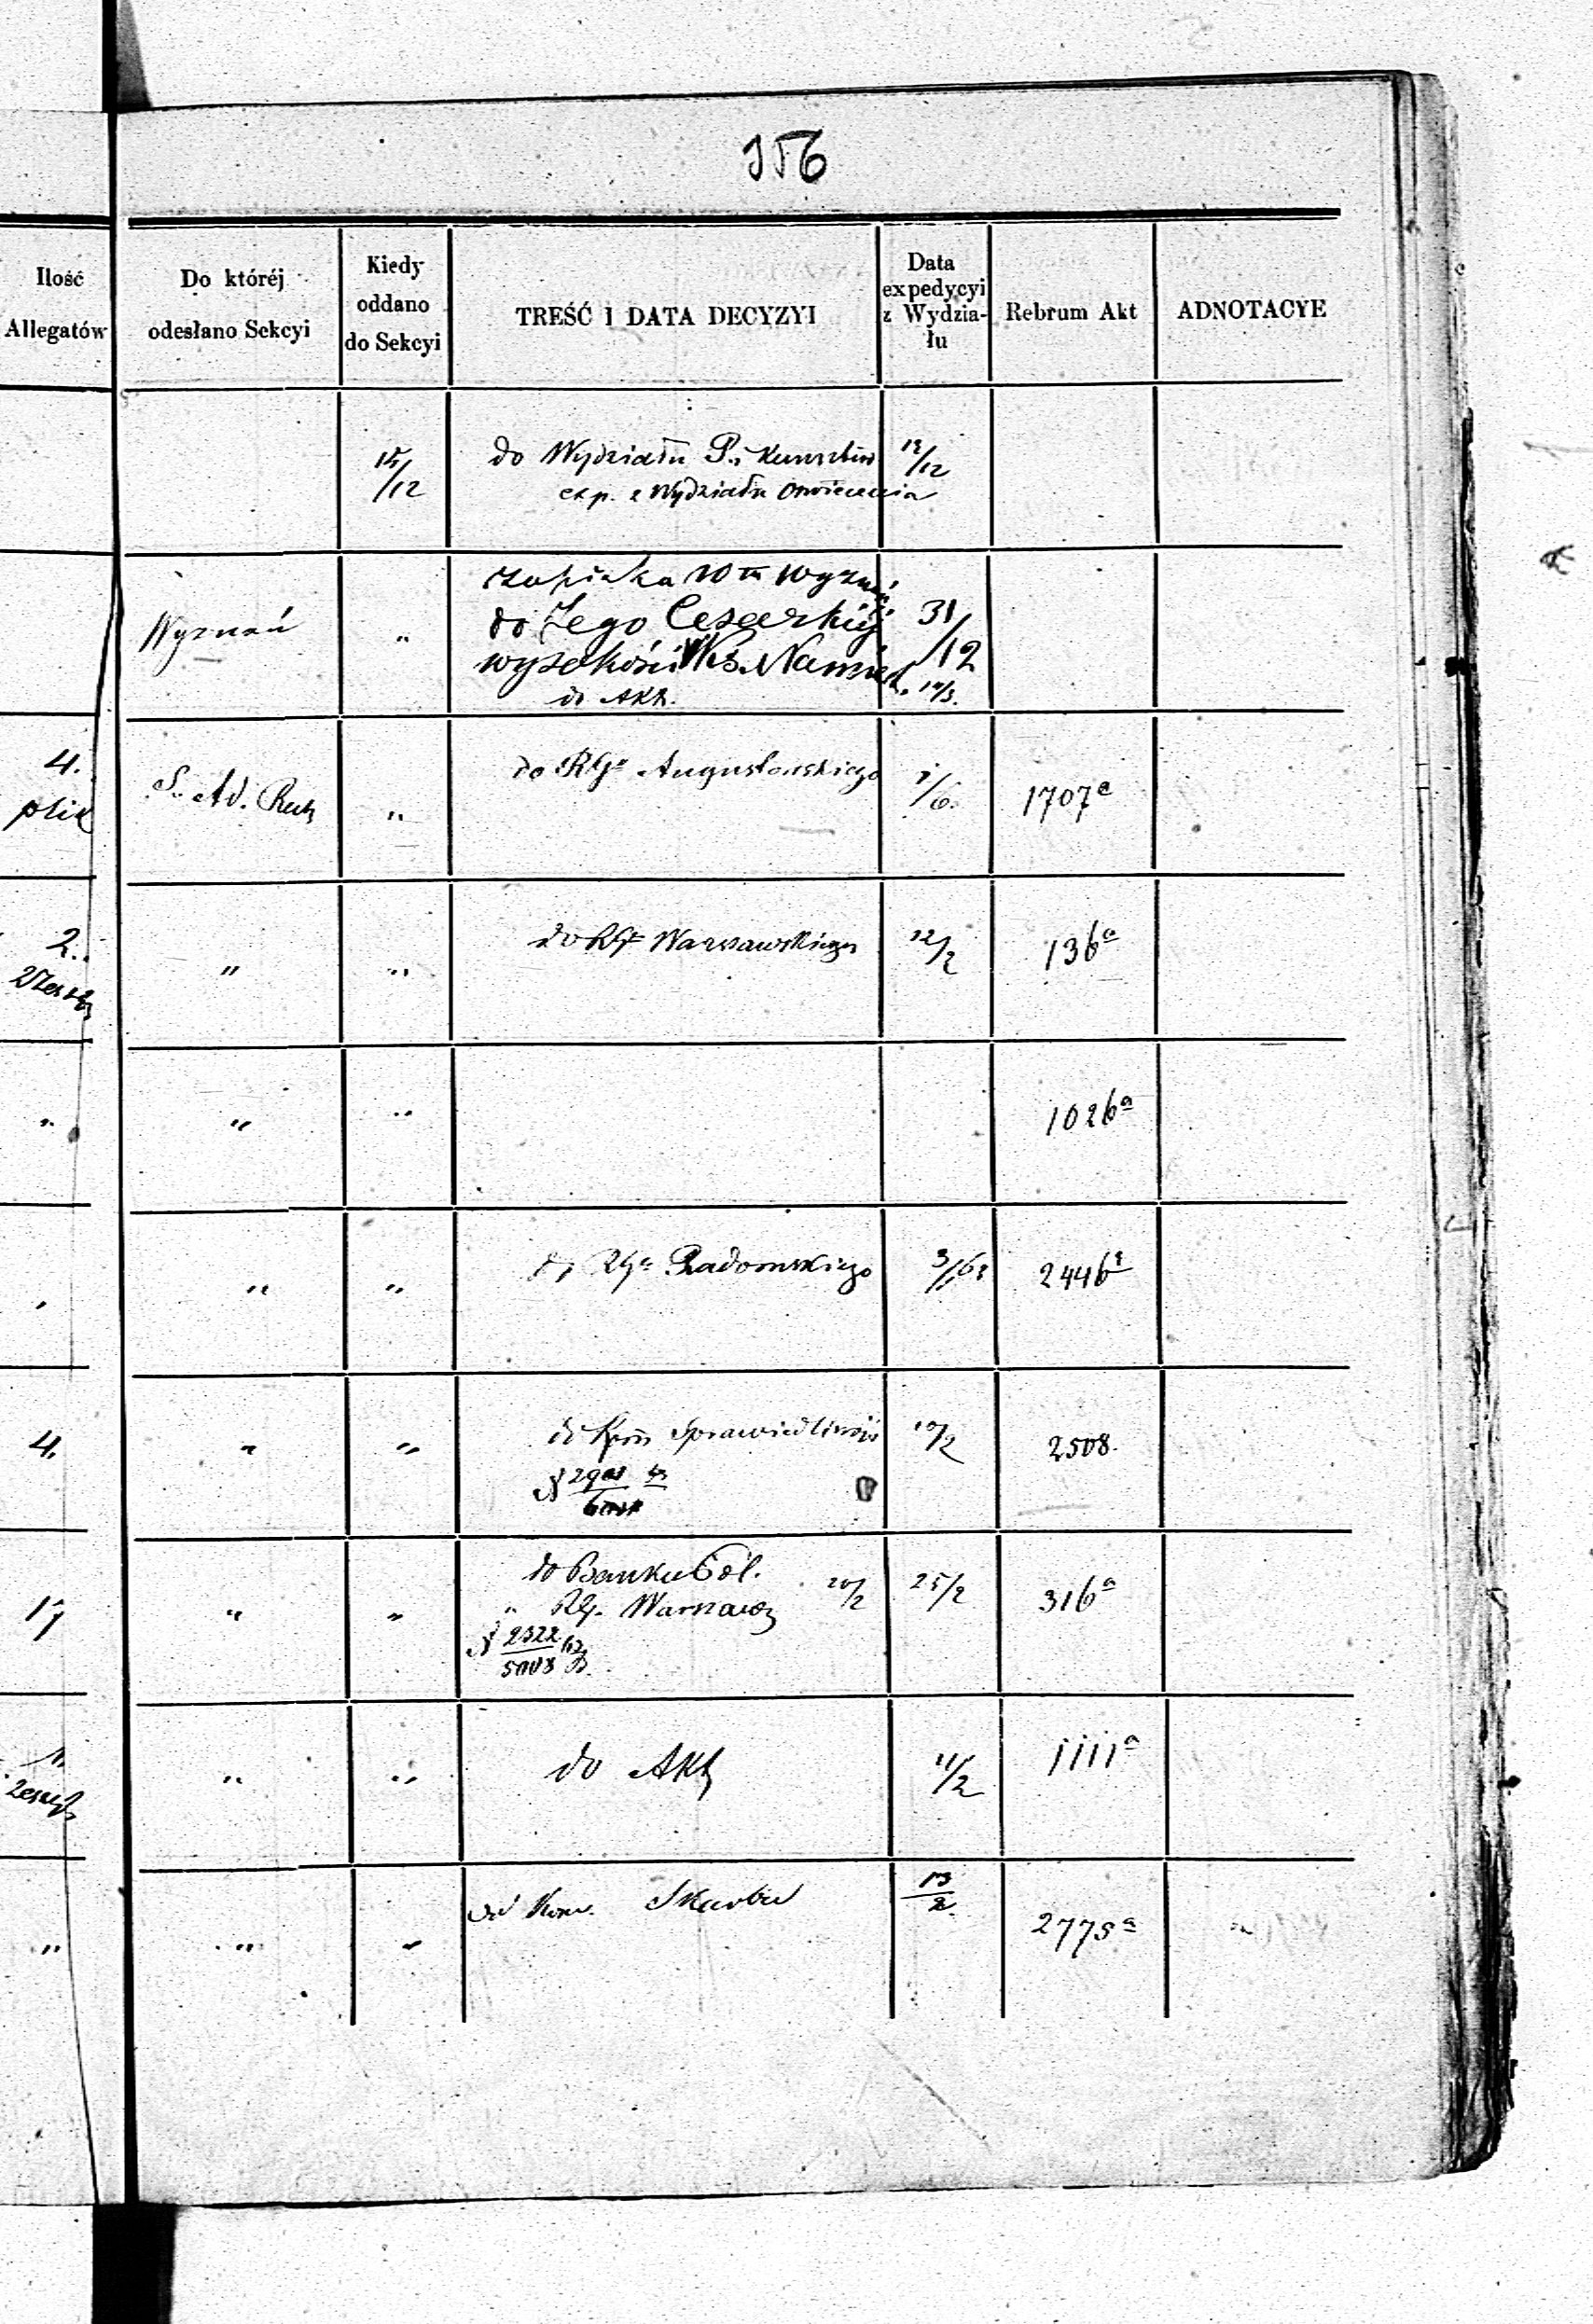 156
Ilość
Allegatów
Do któréj
odesłano Sekcyi
Kiedy
oddano
do Sekcyi
TREŚĆ I DATA DECYZYI
Data
expedycyi
z Wydzia-
łu
Rebrum Akt
ADNOTACYE
15/12
do Wydziału P. i Kunsztów
exp. z Wydziału Oświecenia
12/12
Wyznań
"
do Jego Cesarskiej
wysokości Ks. Namiest.
do Akt.
31/12
4.
plik
S. Ad. Rach
"
do RGo Augustowskiego
1/6.
1707a
2.
"
"
do RG Warszawskiego
12/2
136a
"
"
"
1026a
"
"
"
do RGo Radomskiego
3/1 63
2446a
4.
"
"
do Kom Sprawiedliwości
10/2
2508.
17
"
"
do Banku Pol.
" RG. Warszaw
20/2
25/2
316a
2322
5003
1.
zeszyt
"
"
do Akt
11/2
1111a
"
"
"
od Kom. Skarbu
13/2
2775a